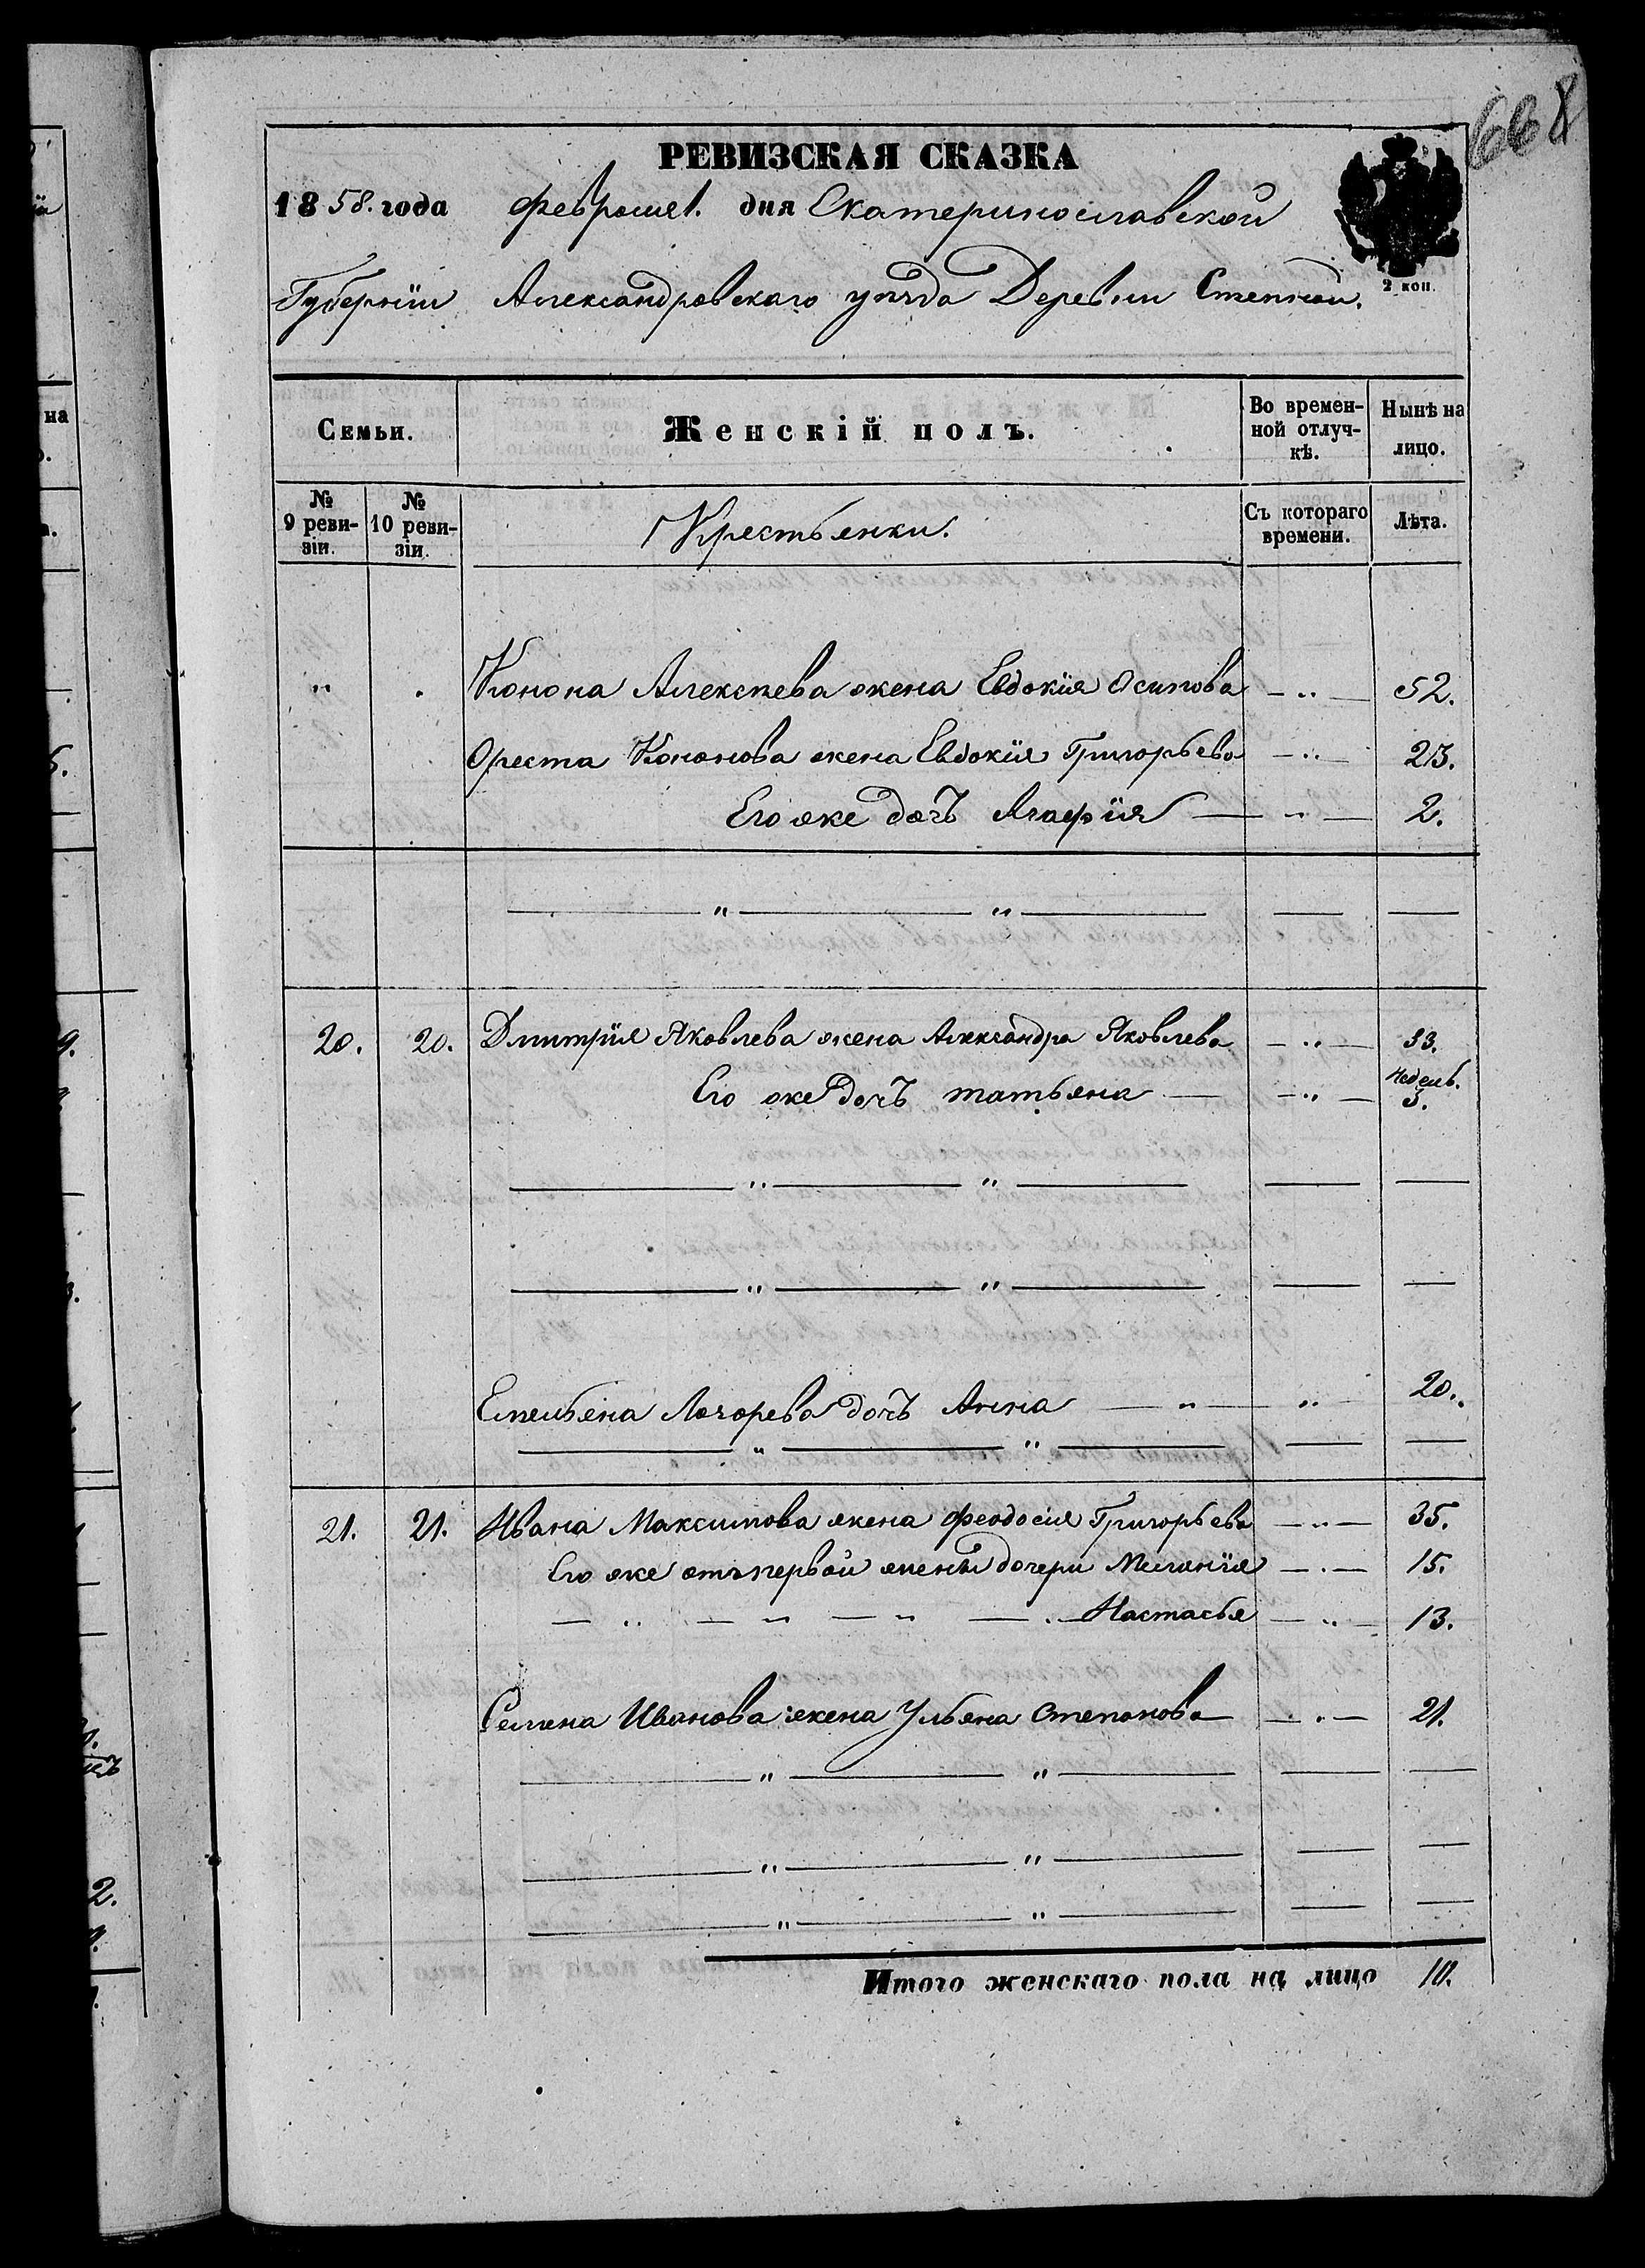 668
РЕВИЗСКАЯ СКАЗКА
1858. года февраля 1. дня Екатеринославской
2 коп.
Губерніи Александровскаго уѣзда Деревни Степной.
Семьи.
Женскій полъ.
Во времен-
ной отлуч-
кѣ.
Нынѣ на
лицо.
№
9 реви-
зіи.
№
10 реви-
зіи.
Крестьянки.
Съ котораго
времени.
Лѣта.
" . Конона Алексѣева жена Евдокія Осипова — " — 52.
Ореста Кононова жена Евдокія Григорьева — " — 23.
Его же дочь Агафія — " — 2.
— " — " — — —
20. 20. Дмитрія Яковлева жена Александра Яковлева — " — 33.
Его же дочь татьяна — — " — недель. 3.
— " — " — — —
— " — " — — —
Емельяна дочь Анна — " — " — 20.
— " — " — — —
21. 21. Ивана Максимова жена Феодосія Григорьева — " — 35.
Его же отъ первой жены дочери Меланія — " — 15.
— " — " — " — " — Настасья — " — 13.
Семена Иванова жена Ульяна Степанова — " — 21.
— " — " — — —
— " — " — — —
— " — " — — —
Итого женскаго пола на лицо 10.